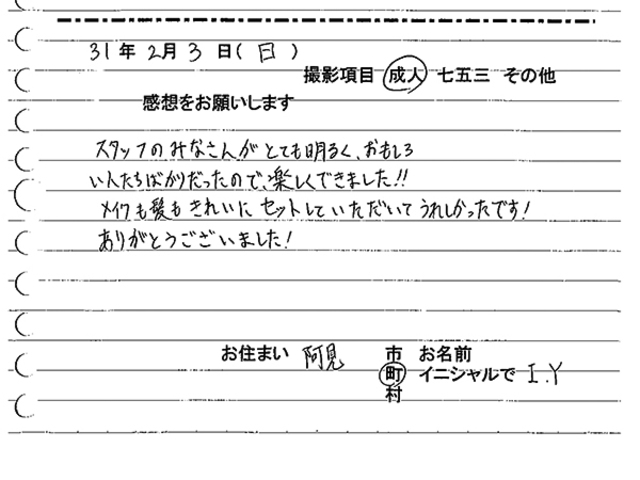 31年 2月 3日(日)
撮影項目 成人 七五三 その他
感想をお願いします
スタッフのみなさんがとても明るく、おもしろ
い人たちばかりだったので、楽しくできました!!
メイクも髪もきれいにセットしていただいてうれしかったです!
ありがとうございました!
お住まい 阿見 市 お名前
町 イニシャルで I.Y
村